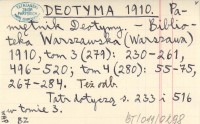 DEOTYMA 1910. Pa-
miętnik Deotymy. - Biblio-
teka Warszawska (Warszawa)
1910, tom 3 (279): 230-261,
496-520; tom 4 (280): 55-75,
267-284. Też odb.
Tatr dotyczą s. 233 i 516
w tomie 3.
BZ